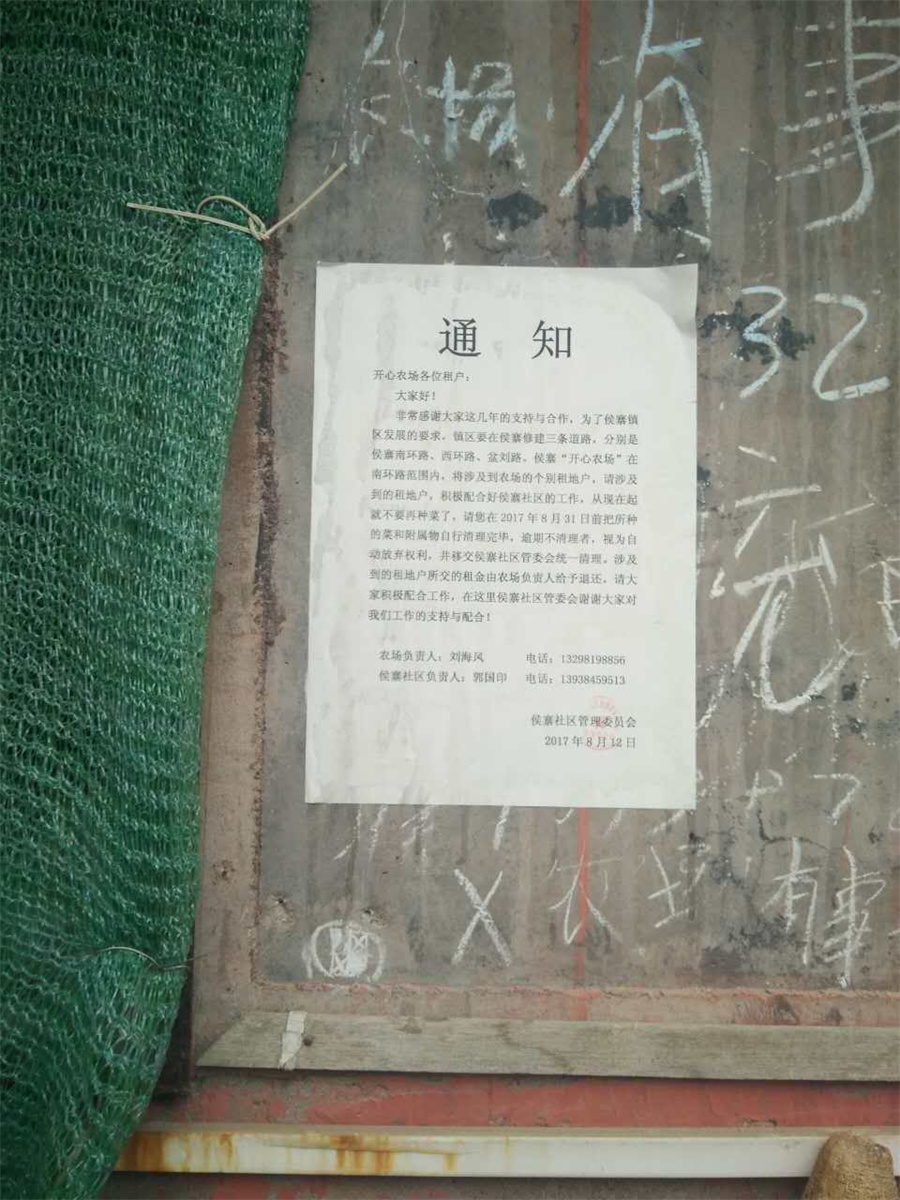 场有事
32
通 知
开心农场各位租户：
大家好！
非常感谢大家这几年的支持与合作，为了侯寨镇
区发展的要求，镇区要在侯寨修建三条道路，分别是
侯寨南环路、西环路、盆刘路。侯寨“开心农场”在
南环路范围内，将涉及到农场的个别租地户，请涉及
到的租地户，积极配合好侯寨社区的工作，从现在起
就不要再种菜了，请您在2017年8月31日前把所种
的菜和附属物自行清理完毕，逾期不清理者，视为自
动放弃权利，并移交侯寨社区管委会统一清理。涉及
到的租地户所交的租金由农场负责人给予退还。请大
家积极配合工作，在这里侯寨社区管委会谢谢大家对
我们工作的支持与配合！
农场负责人：刘海风 电话：13298198856
侯寨社区负责人：郭国印 电话：13938459513
侯寨社区管理委员会
2017年8月12日
X农场有事